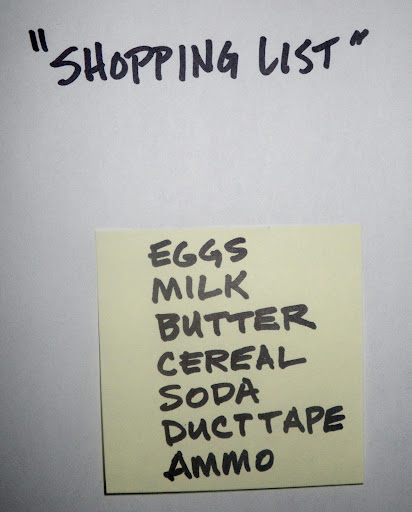 "SHOPPING LIST"
EGGS
MILK
BUTTER
CEREAL
SODA
DUCT TAPE
AMMO